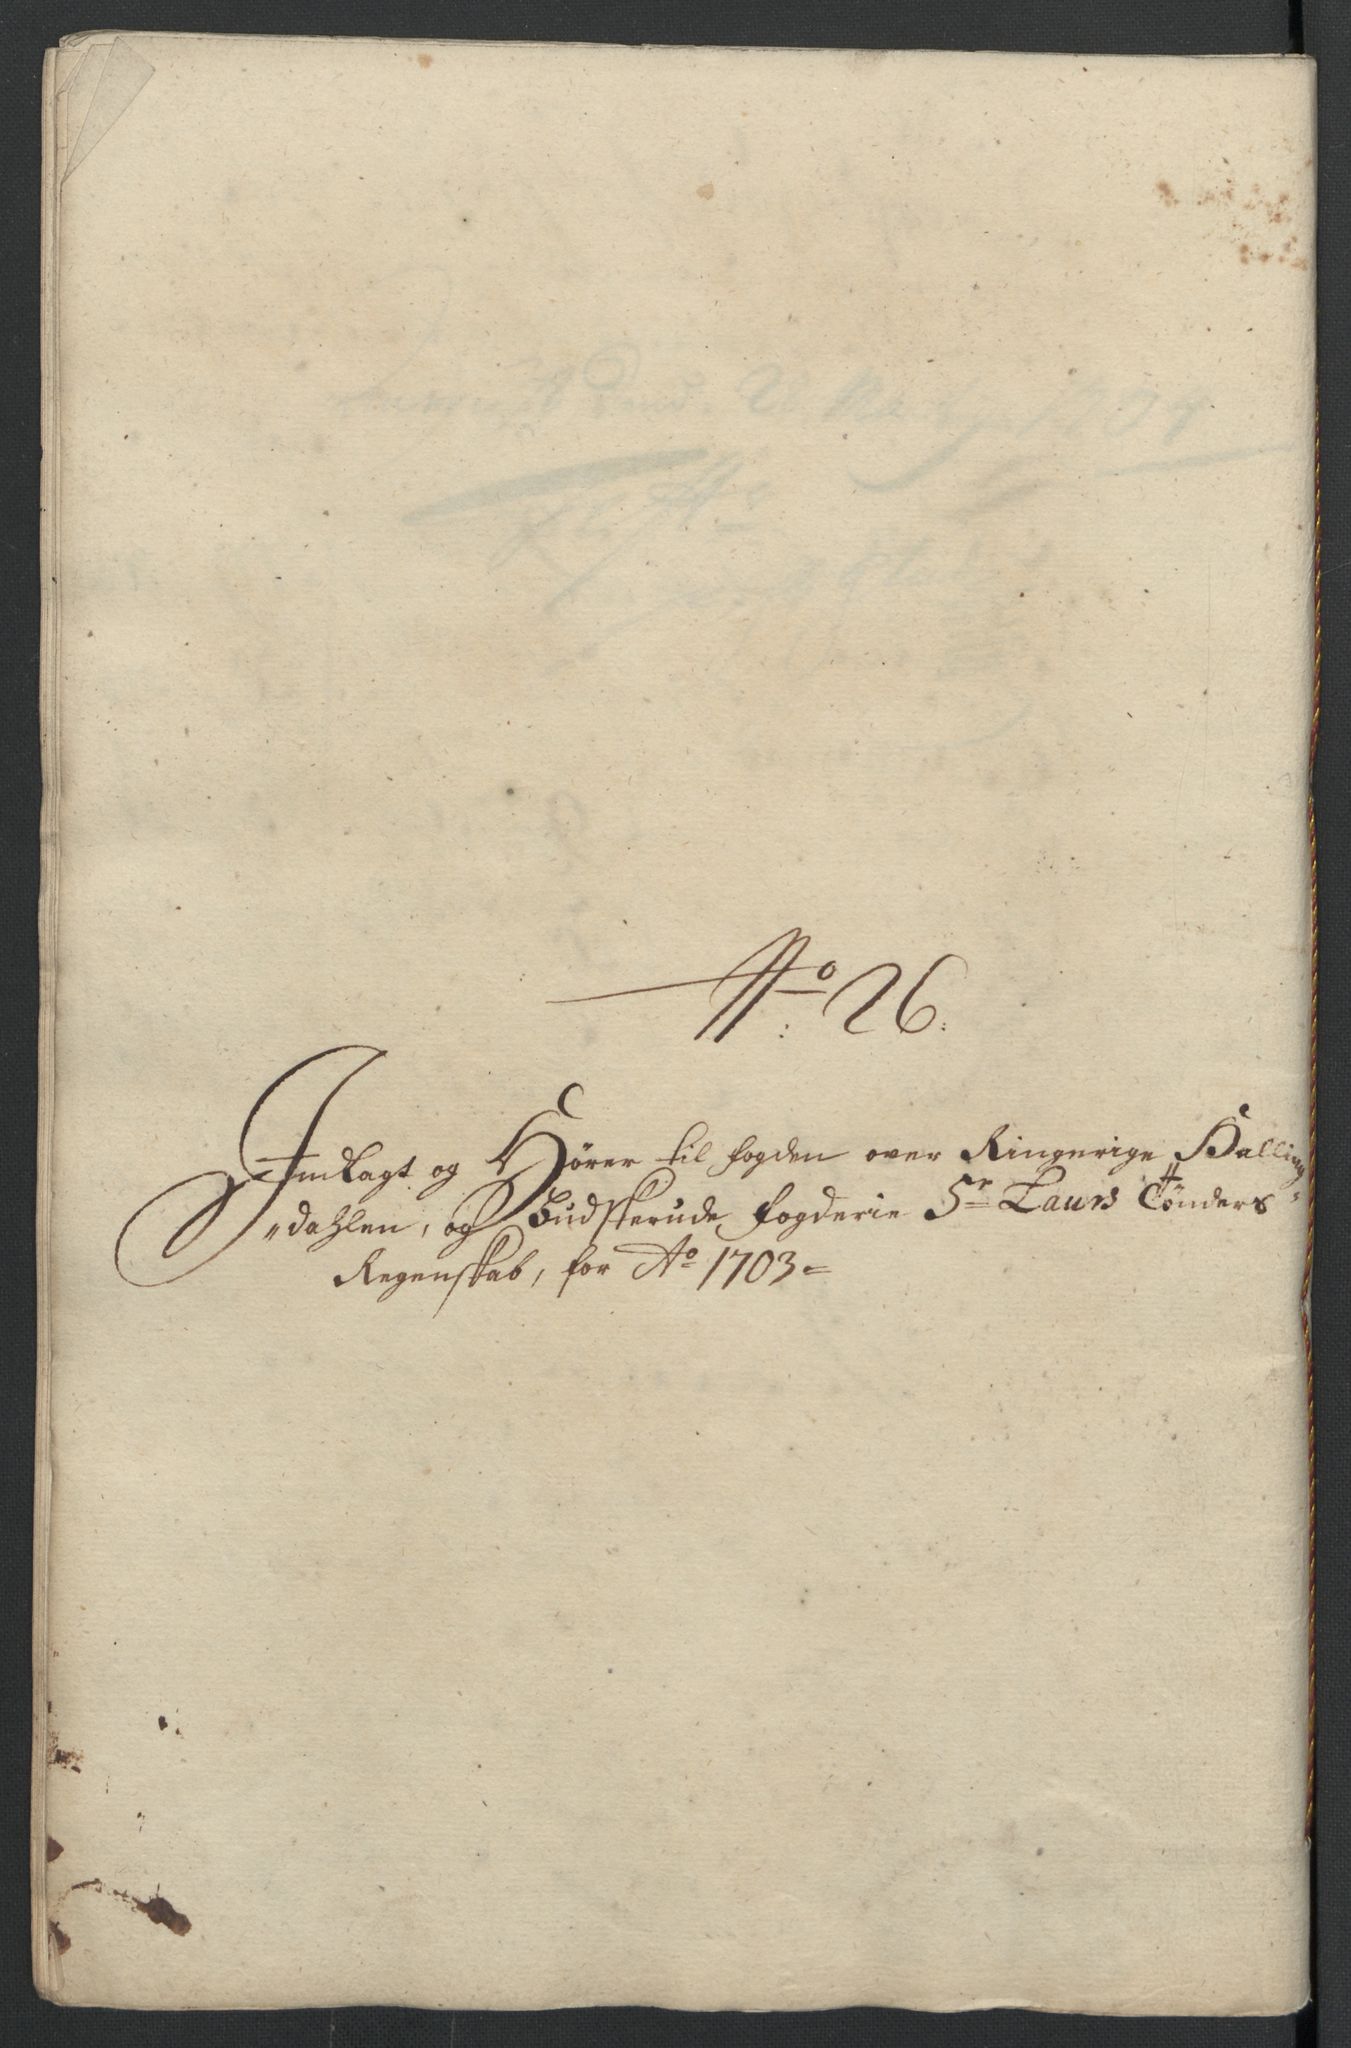 No 26.
Indlagt og Hörer til fogden over Ringerige Halling
„dahlen, og Budskerude fogderie Sr Laurs Tønders
Regenskab, for Ao 1703=